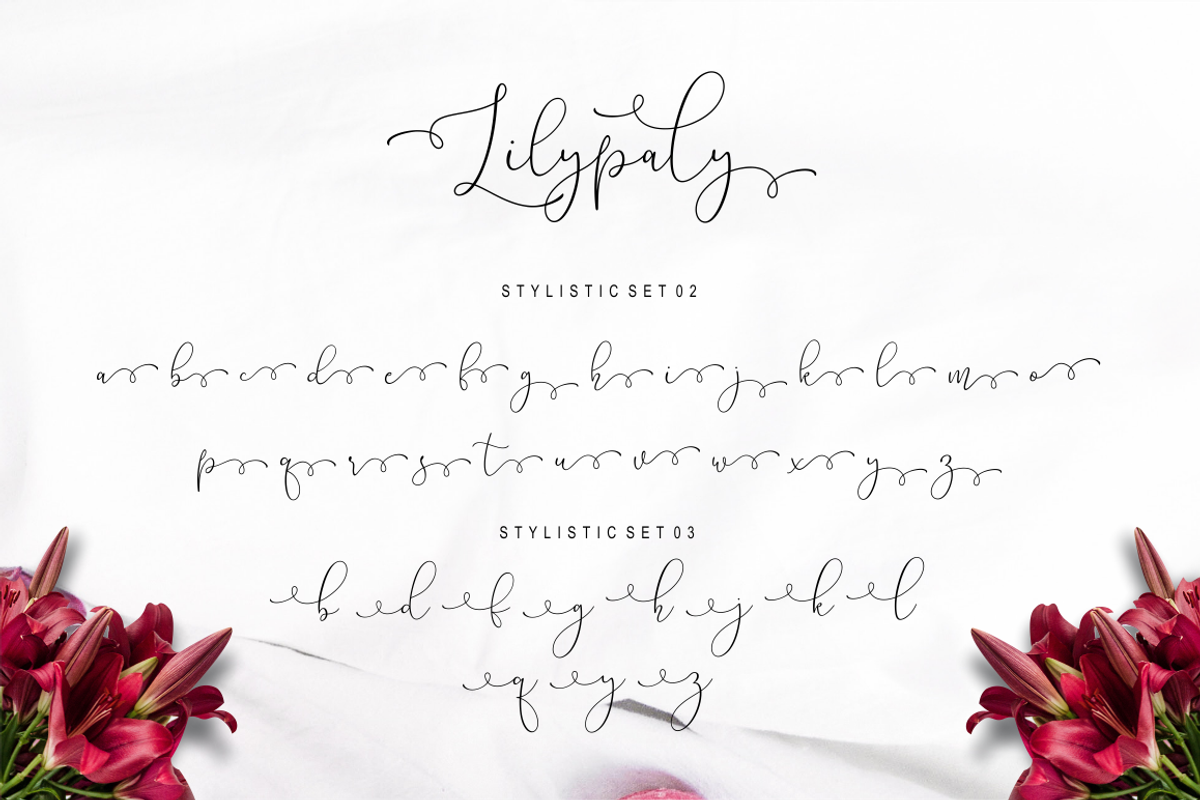 Lilypaly
STYLISTIC SET 02
a b c d e f g h i j k l m o
p q r s t u v w x y z
STYLISTIC SET 03
b d f g h j k l
q y z